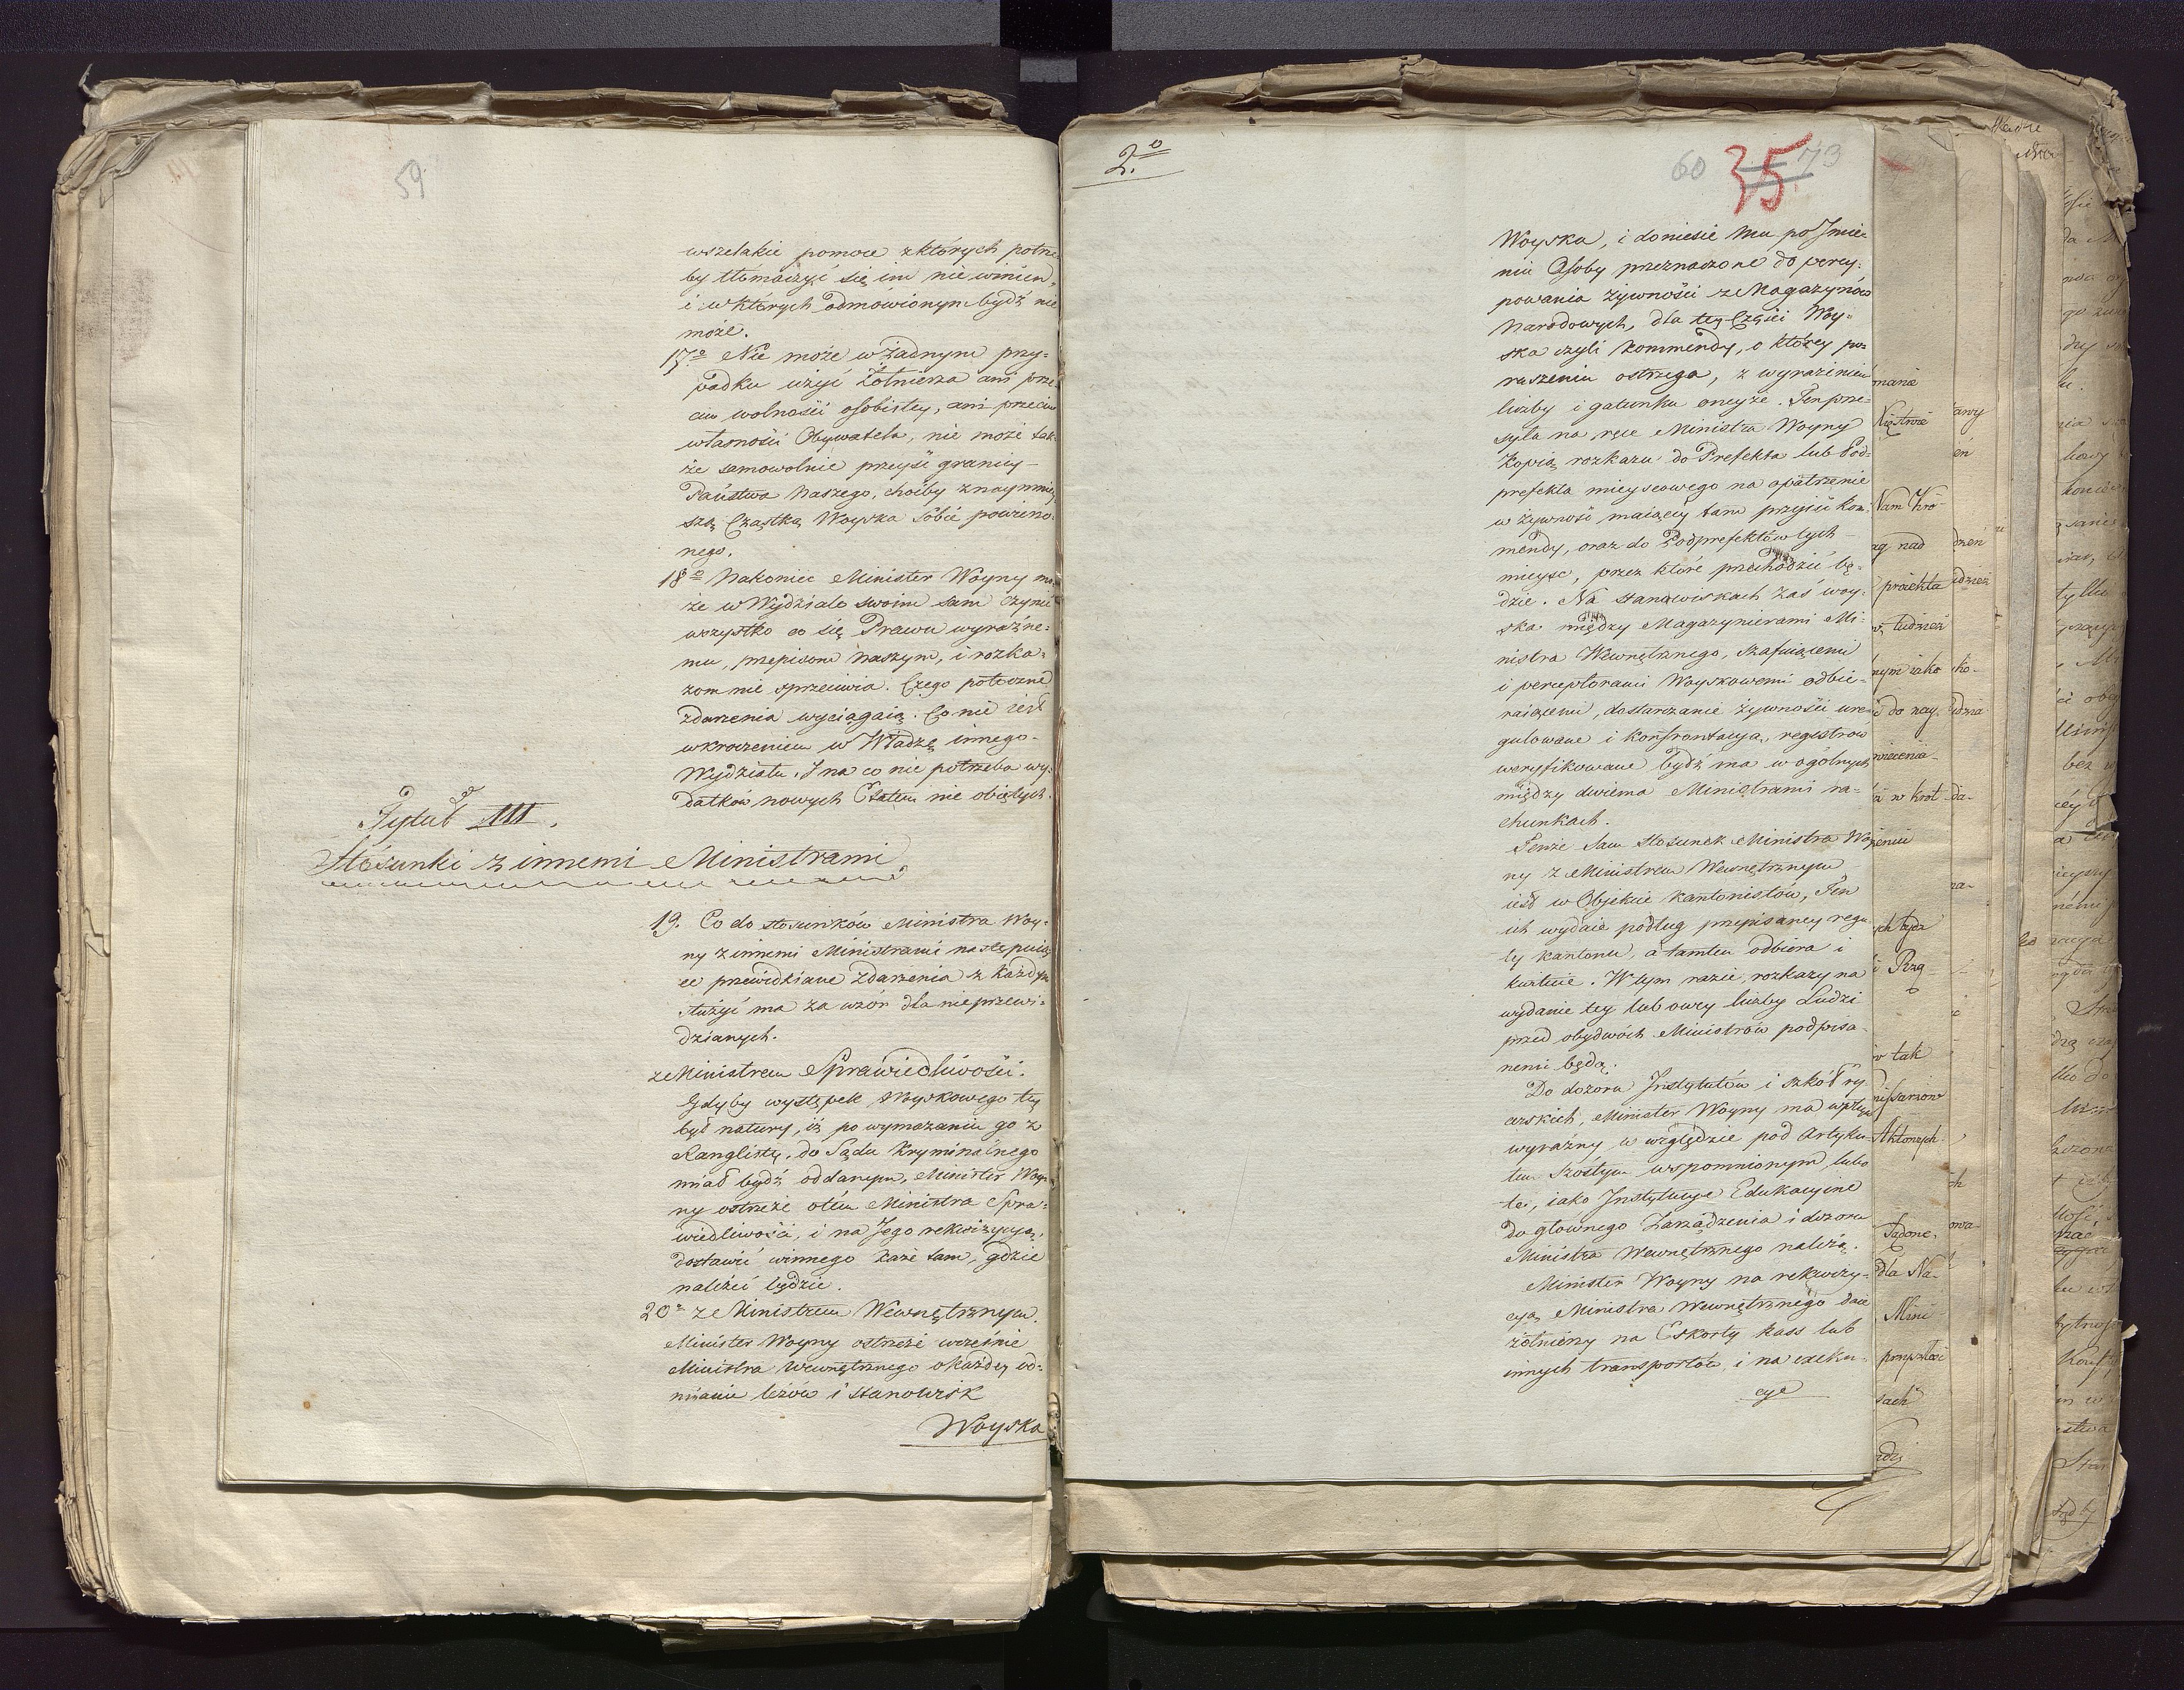 59
wszelakie pomoce z których potrze
by tłómaczyć się im nie winien,
i w których odmówionym bydź nie
może.
17o Nie może w żadnym przy-
padku użyć Żołnierza ani prze
ciw wolności osobistey, ani przeciw
własności Obywatela, nie może tak-
że samowolnie przeyść granicy
Państwa Naszego, choćby z naymniey
szą Cząstką Woyska Sobie powierzo-
nego.
18o Nakoniec Minister Woyny mo
że w Wydziale swoim sam czynić
wszystko co się Prawu wyraźne-
mu, przepisom Naszym, i rozka-
zom nie sprzeciwia. Czego potoczne
zdarzenia wyciągaią. Co nie iest
wkroczeniem w Władzę innego
Wydziału. I na co nie potrzeba wy-
datków nowych Etatem nie obiętych.
Tytuł III.
Stosunki z innemi Ministrami
19. Co do stosunków Ministra Woy-
ny z innemi Ministrami następuią
ce przewidziane zdarzenia z każdym
służyć ma za wzór dla nieprzewi-
dzianych.
z Ministrem Sprawiedliwości.
Gdyby występek Woyskowego tey
był natury, iż po wymazaniu go z
Ranglisty, do Sądu Kryminalnego
miał bydź oddanym, Minister Woy-
ny ostrzeże o tém Ministra Spra-
wiedliwości, i na Jego rekwizycyą,
dostawić winnego każe tam, gdzie
należeć będzie.
20o z Ministrem Wewnętrznym.
Minister Woyny ostrzeże wcześnie
Ministra Wewnętrznego o każdey od-
mianie leżów i stanowisk
Woyska
2.o
60 35 73
Woyska, i doniesie Mu po Jmie-
niu Osoby przeznaczone do percy-
powania żywności z Magazynów
Narodowych, dla tey Części Woy-
ska czyli Kommendy, o którey po-
ruszeniu ostrzega, z wyrażeniem
liczby i gatunku oneyże. Ten prze-
syła na ręce Ministra Woyny
Kopią rozkazu do Prefekta lub Pod-
prefekta mieyscowego na opatrzenie
w żywność maiącey tam przyiść kom-
mendy, oraz do Podprefektów tych
mieysc, przez które przechodzić bę-
dzie. Na stanowiskach zaś woy-
ska między Magazynierami Mi-
nistra Wewnętrznego, szafuiącemi
i perceptorami Woyskowemi odbie-
raiącemi, dostarczanie żywności ure-
gulowane i konfrontacyą registrow
weryfikowane bydź ma w ogólnych
między dwiema Ministrami ra-
chunkach.
Tenże sam stosunek Ministra Woy
ny z Ministrem Wewnętrznym
iest w Objekcie kantonistów, Ten
ich wydaie podług przepisaney regu
ły kantonu, a tamten odbiera i
kwituie. W tym razie, rozkazy na
wydanie tey lub owey liczby Ludzi
przed obydwóch Ministrów podpisa-
nemi będą.
Do dozoru Instytutów i szkół ry
cerskich, Minister Woyny ma wpływ
wyraźny, w względzie pod Artyku-
łem szóstym wspomnionym, lubo
te, iako Instytucye Edukacyine
do głownego Zarządzenia i dozoru
Ministra Wewnętrznego należą.
Minister Woyny na rekwizy-
cyą Ministra Wewnętrznego daie
żołnierzy na Eskorty kass lub
innych transportów, i na exeku-
cye